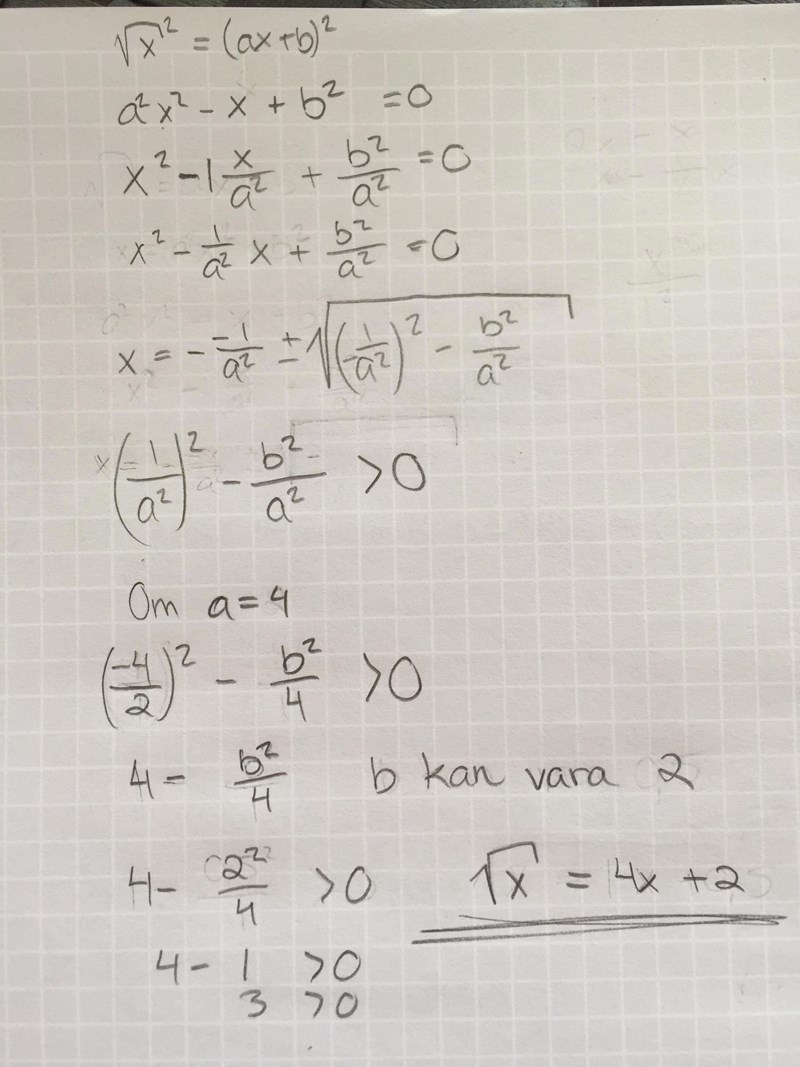 √x² = (ax+b)²
a²x² - x + b² = 0
x² - 1 x/a² + b²/a² = 0
x² - 1/a² x + b²/a² = 0
x = - -1/a² ± √((-1/a²)² - b²/a²)
(-1/a²)² - b²/a² > 0
Om a = 4
(-4/2)² - b²/4 > 0
4 - b²/4 b kan vara 2
4 - 2²/4 > 0 √x = 4x + 2
4 - 1 > 0
3 > 0